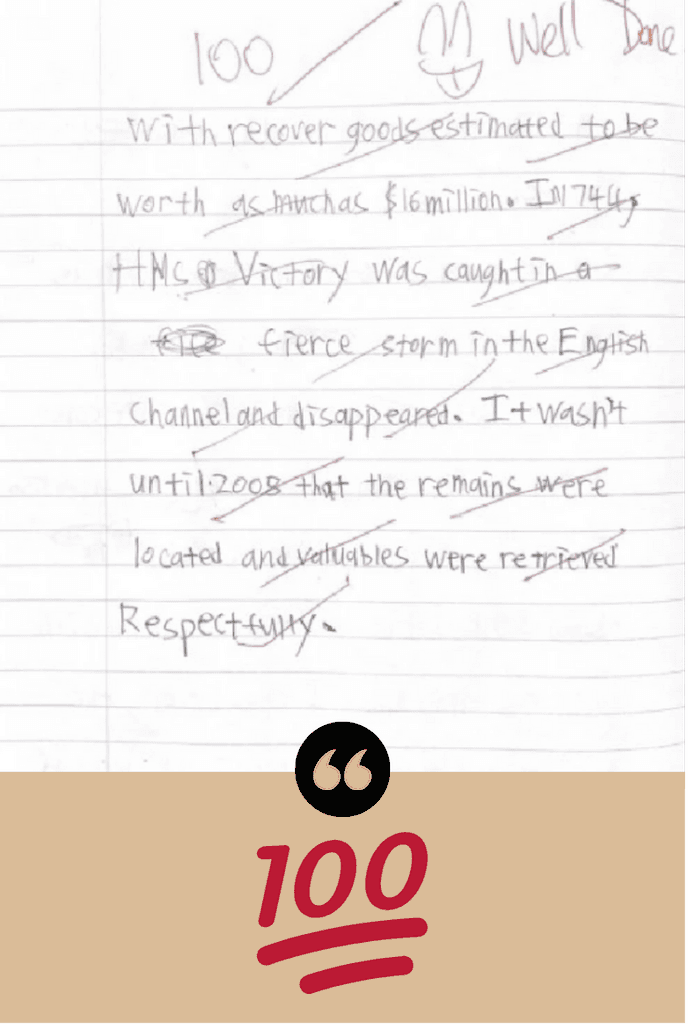 100 Well Done
With recover goods estimated to be
worth as much as $16 million. IN 744,
HMs Victory was caught in a
fierce storm in the English
Channel and disappeared. It wasn't
until 2008 that the remains were
located and valuables were retrieved
Respectfully.
“
100